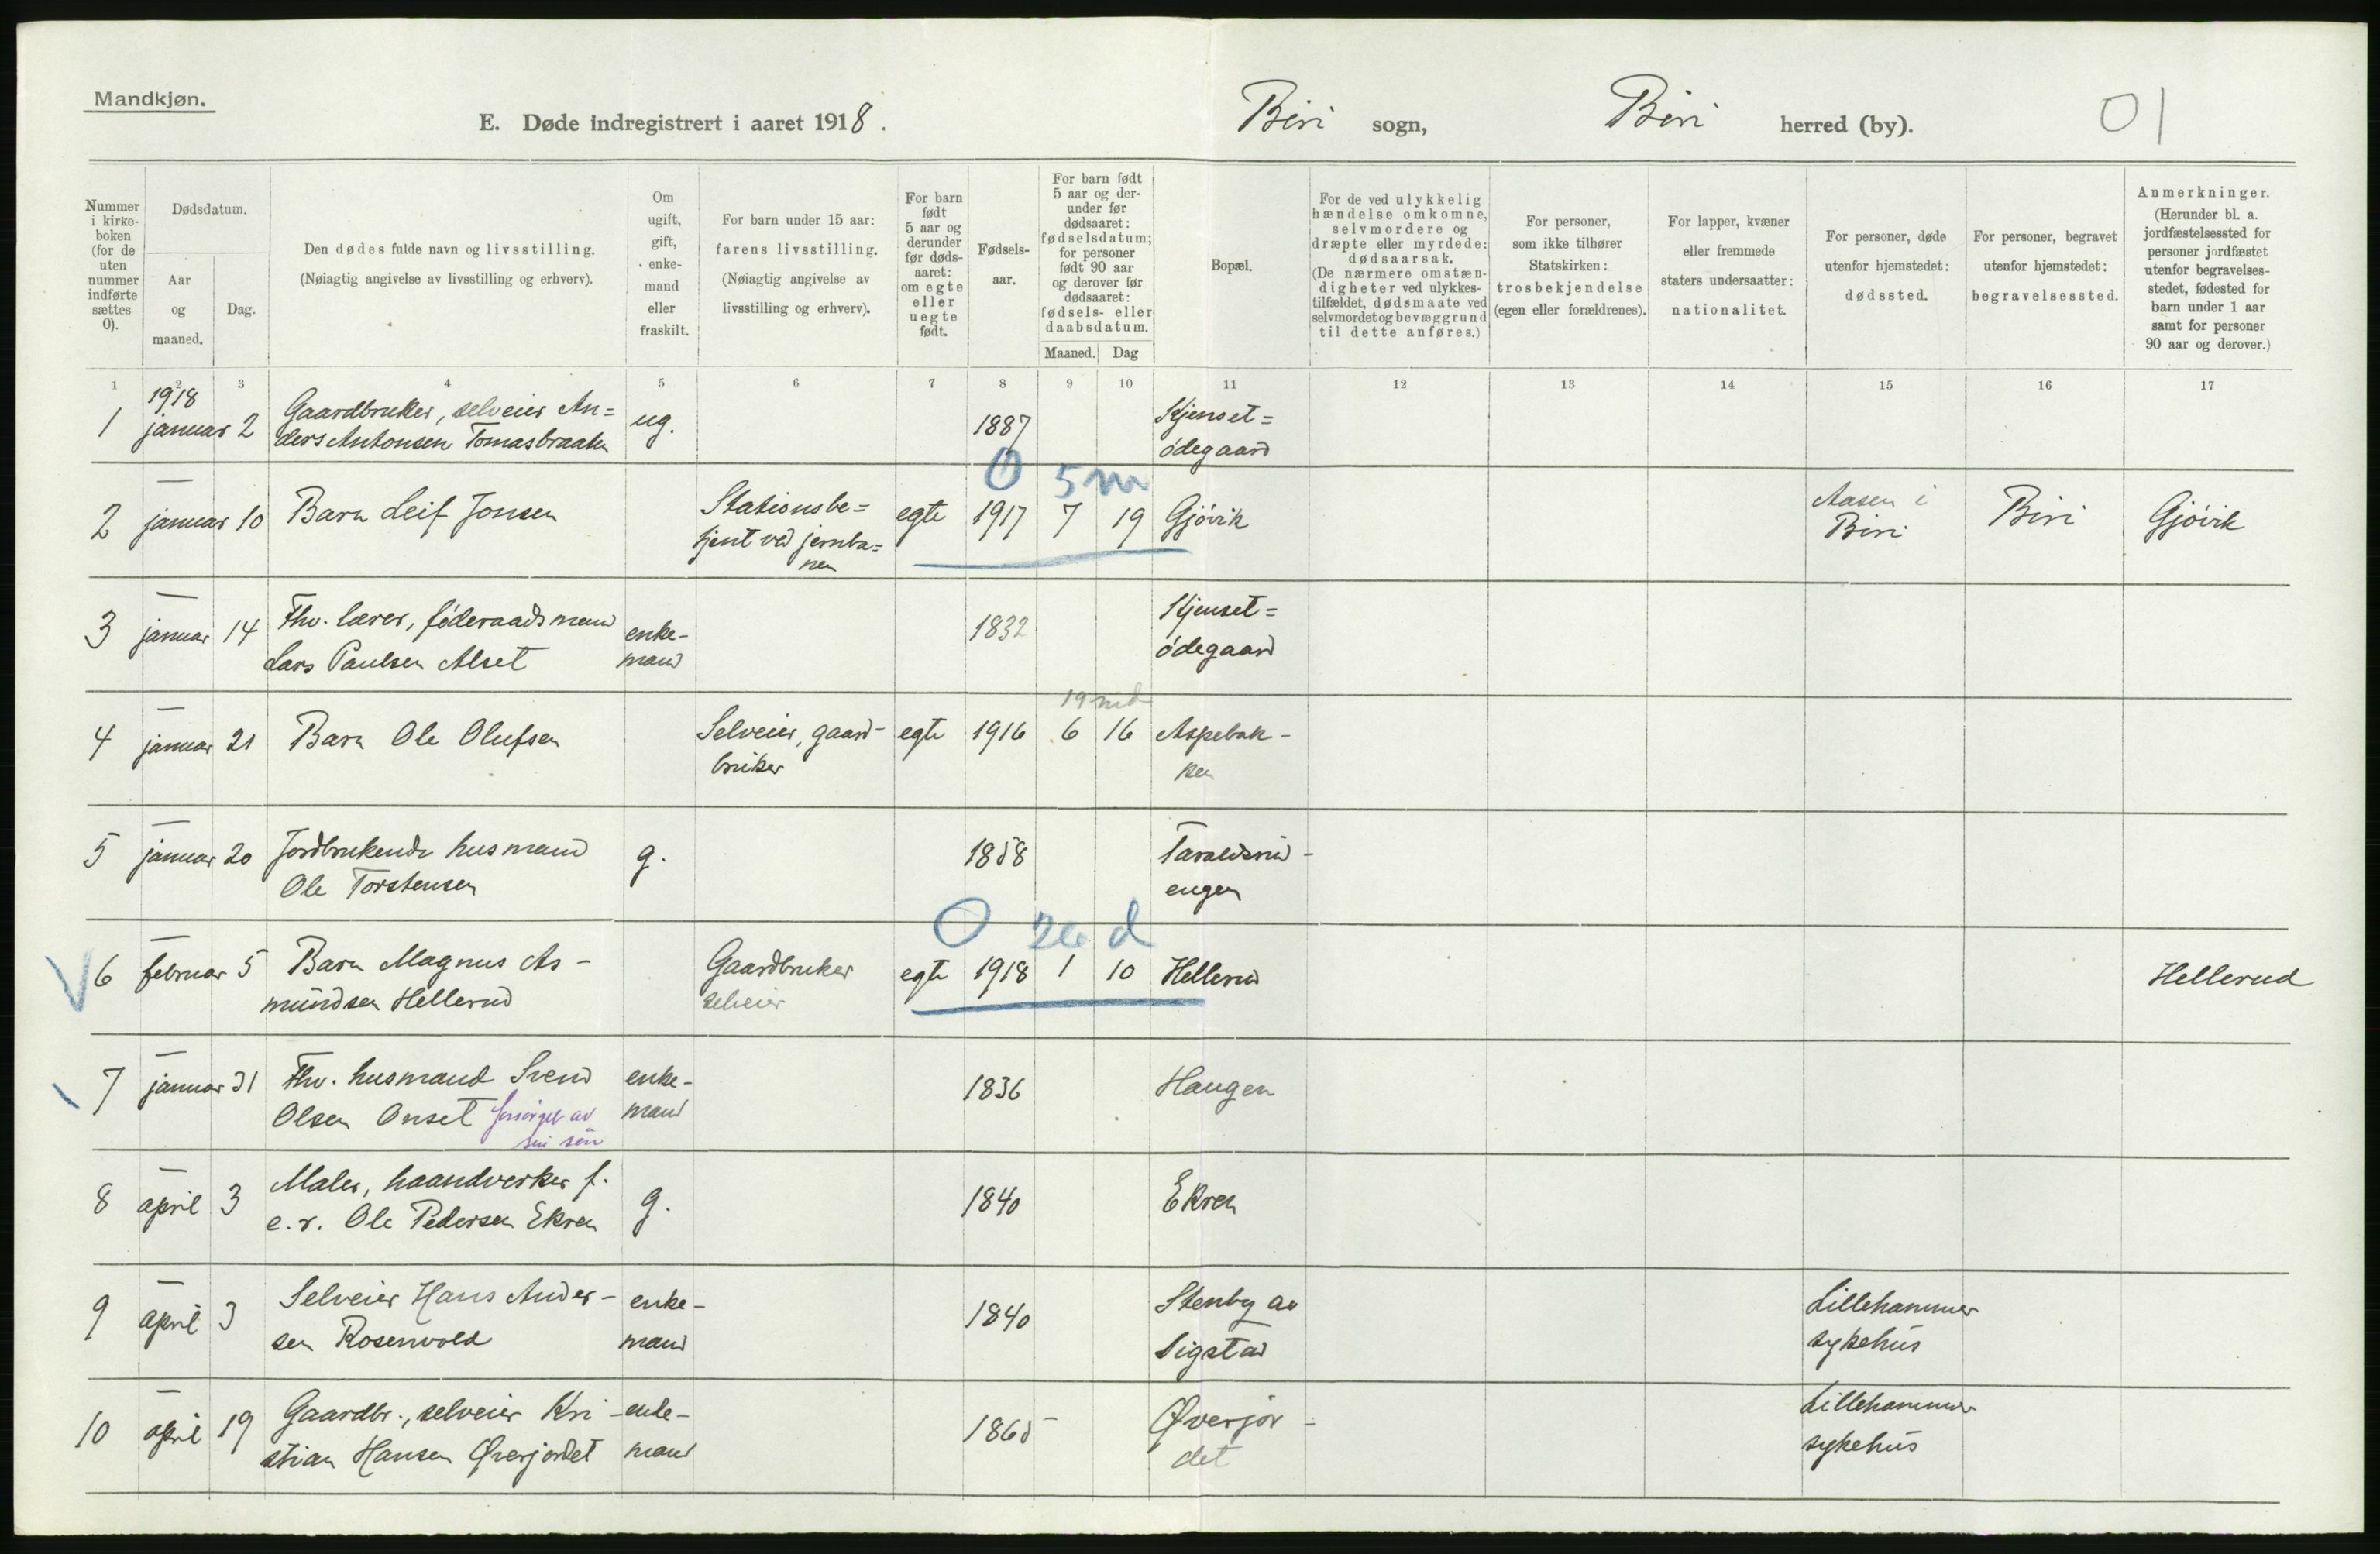 Mandkjøn.
E. Døde indregistrert i aaret 1918.
Biri sogn, Biri herred (by).
01
Nummer i kirke-boken (for de uten nummer indførte sættes 0).
Dødsdatum.
Aar og maaned.
Dag.
Den dødes fulde navn og livsstilling.
(Nøiagtig angivelse av livsstilling og erhverv).
Om ugift, gift, enke-mand eller fraskilt.
For barn under 15 aar:
farens livsstilling.
(Nøiagtig angivelse av livsstilling og erhverv).
For barn født 5 aar og derunder før døds-aaret: om egte eller uegte født.
Fødsels-aar.
For barn født 5 aar og der-under før dødsaaret: fødselsdatum; for personer født 90 aar og derover før dødsaaret: fødsels- eller daabsdatum.
Maaned. Dag
Bopæl.
For de ved ulykkelig hændelse omkomne, selvmordere og dræpte eller myrdede: dødsaarsak.
(De nærmere omstæn-digheter ved ulykkes-tilfældet, dødsmaate ved selvmordet og bevæggrund til dette anføres.)
For personer, som ikke tilhører Statskirken: trosbekjendelse (egen eller forældrenes).
For lapper, kvæner eller fremmede staters undersaatter: nationalitet.
For personer, døde utenfor hjemstedet: dødssted.
For personer, begravet utenfor hjemstedet: begravelsessted.
Anmerkninger.
(Herunder bl. a. jordfæstelsessted for personer jordfæstet utenfor begravelses-stedet, fødested for barn under 1 aar samt for personer 90 aar og derover.)
1 2 3 4 5 6 7 8 9 10 11 12 13 14 15 16 17
1918
1 januar 2 Gaardbruker, selveier An= ug. 1887 Kjenset=
ders Antonsen Tomasbraaten ødegaard
0 5 m
2 januar 10 Barn Leif Jonsen Stationsbe= egte 1917 7 19 Gjøvik Aasen i Biri Biri Gjøvik
tjent ved jernba=
nen
3 januar 14 Fhv. lærer, føderaadsmand enke- 1832 Kjenset=
Lars Paulsen Alset mand ødegaard
19 md
4 januar 21 Barn Ole Olufsen Selveier, gaard- egte 1916 6 16 Aspebak-
bruker ken
5 januar 20 Jordbrukende husmand g. 1858 Taraldsrud-
Ole Torstensen engen
0 26 d
6 februar 5 Barn Magnus As- Gaardbruker egte 1918 1 10 Hellerud Hellerud
mundsen Hellerud selveier
7 januar 31 Fhv. husmand Svend enke- 1836 Haugen
Olsen Onset forsørget av mand
sin søn
8 april 3 Maler, haandverker f. g. 1840 Ekren
e. r. Ole Pedersen Ekren
9 april 3 Selveier Hans Ander- enke- 1840 Stenby av Lillehammer
sen Rosenvold mand Sigstad sykehus
10 april 19 Gaardbr., selveier Kri- enke- 1865 Øverjor- Lillehammer
stian Hansen Øverjordet mand det sykehus